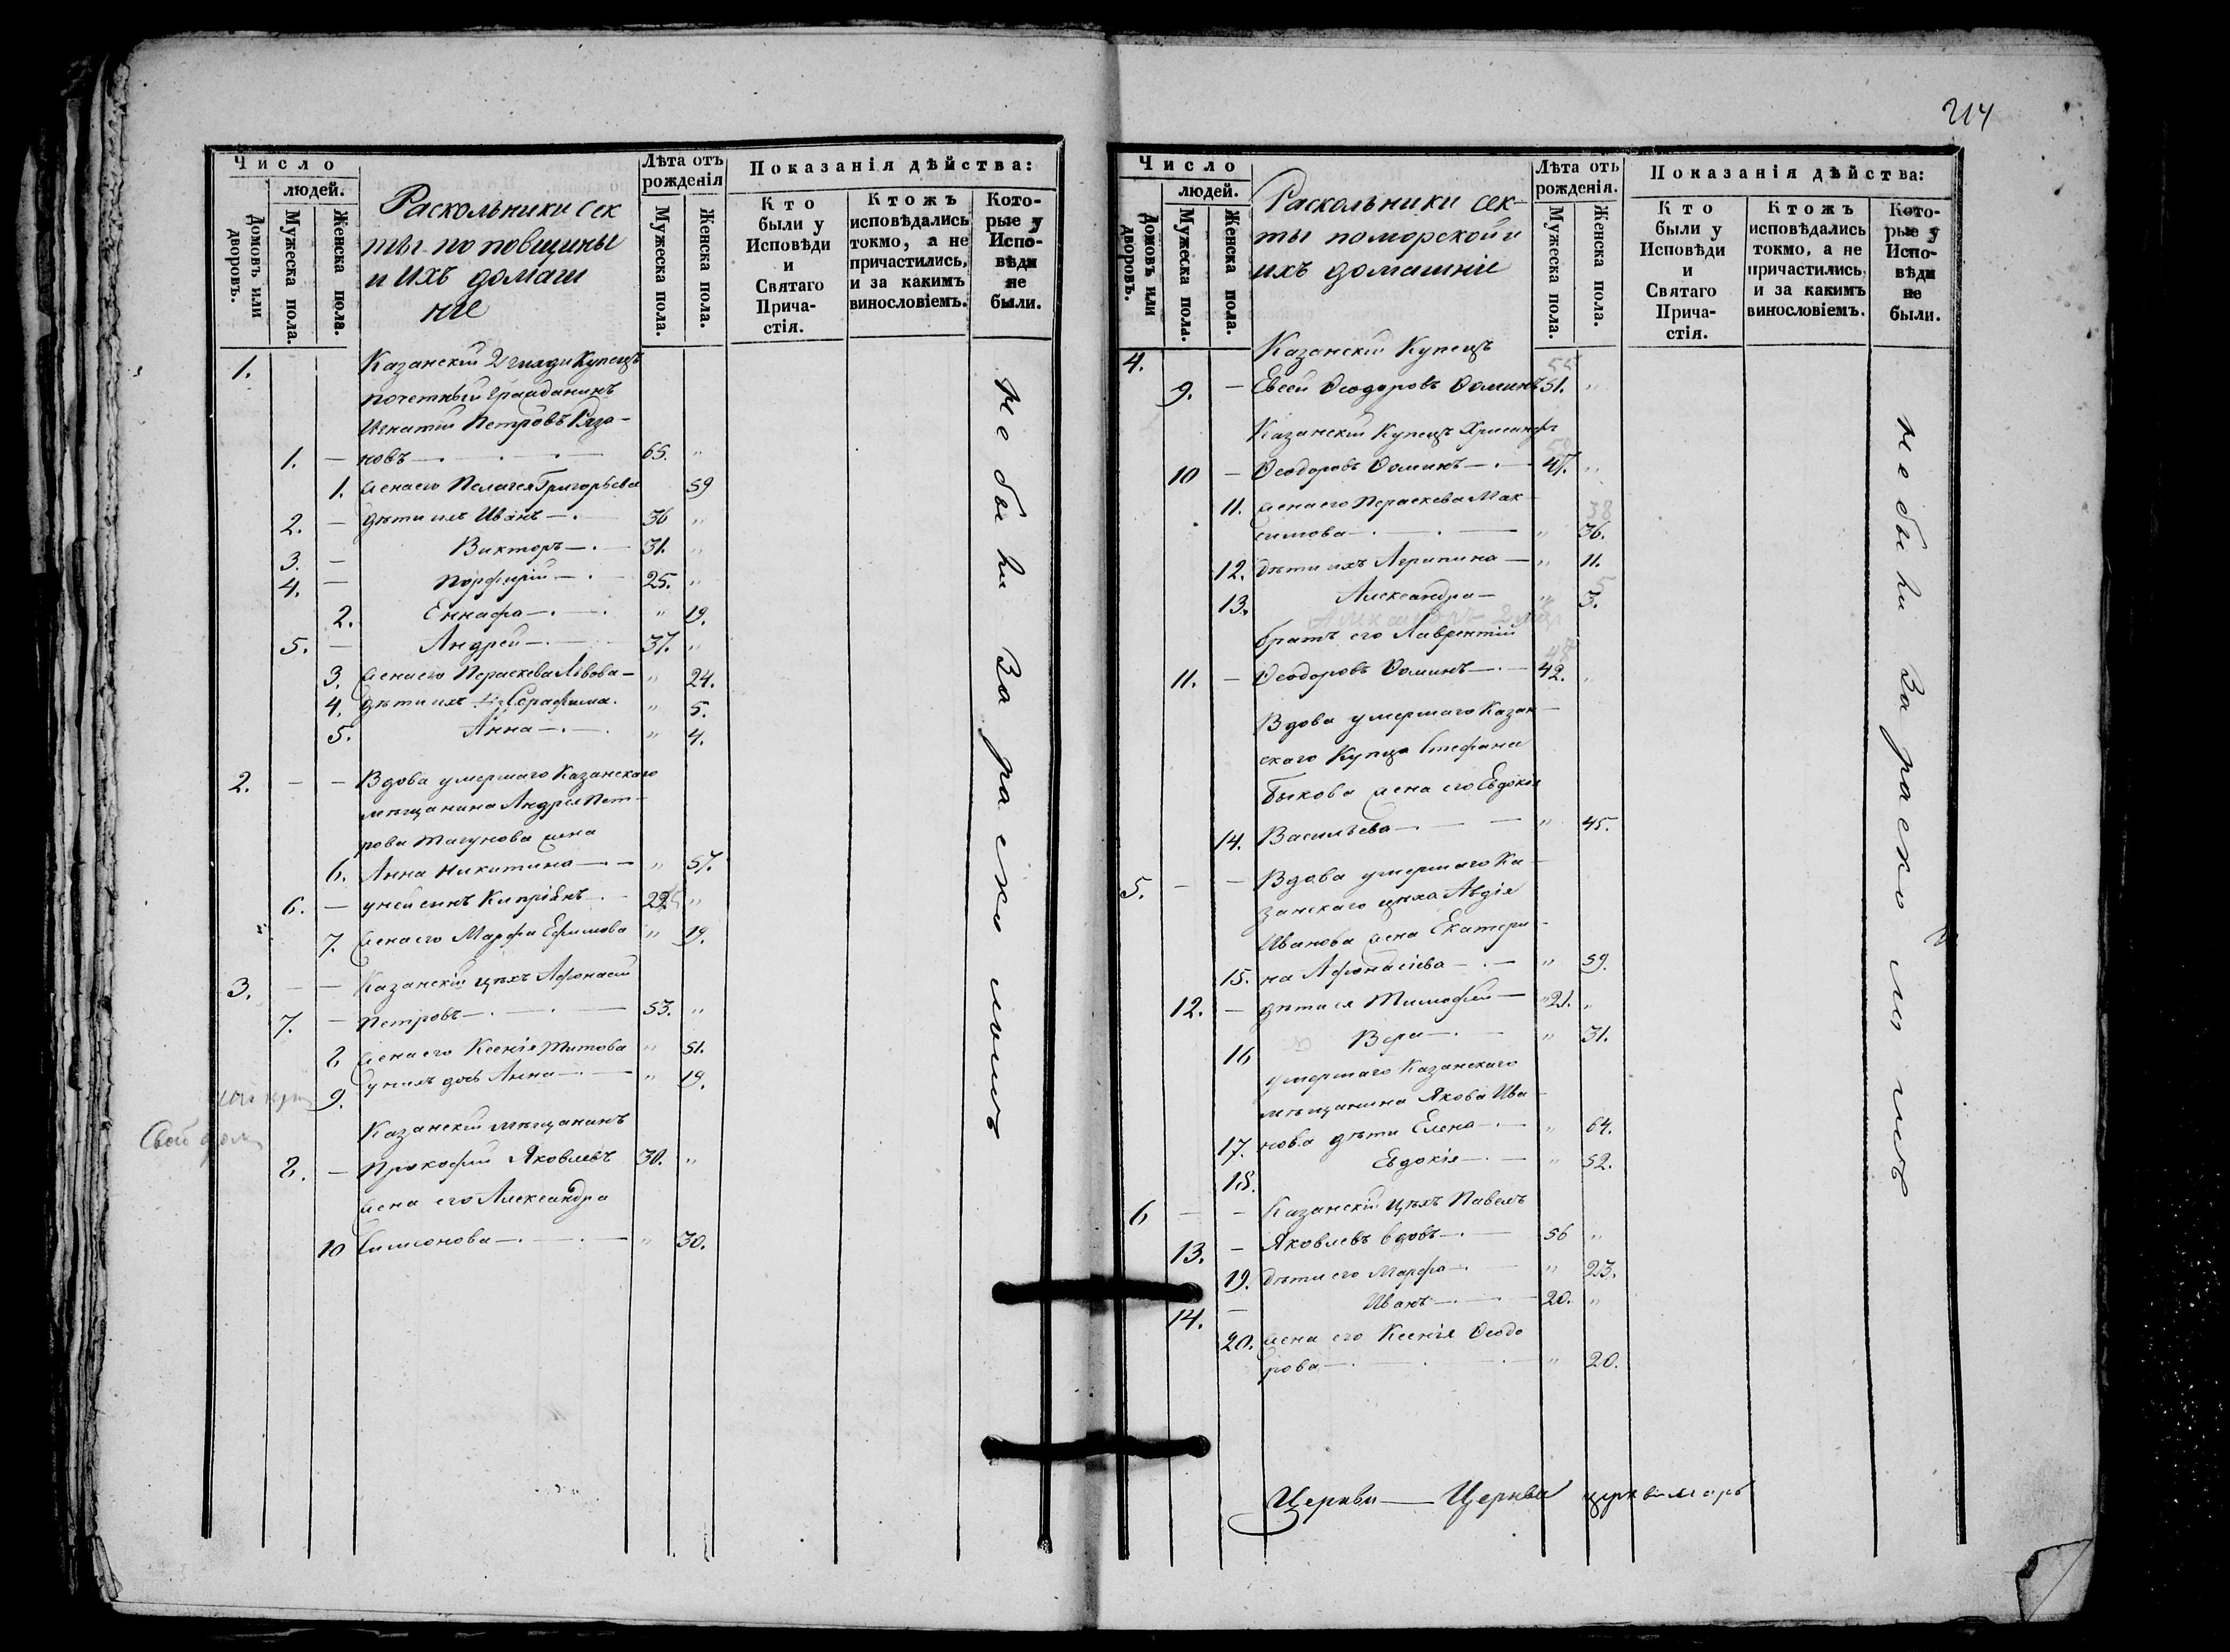 Число
людей.
Домовъ или дворовъ.
Мужеска пола.
Женска пола.
Раскольники сек
ты поповщины
и ихъ домаш
ніе
Лѣта отъ рожденія
Мужеска пола.
Женска пола.
Показанія дѣйства:
Кто были у Исповѣди и Святаго Прича-стія.
Ктожъ исповѣдались токмо, а не причастились, и за какимъ винословіемъ.
Кото-рые у Испо-вѣди не были.
1. Казанскій 2 гилдіи Купецъ
почетный гражданинъ
Игнатій Петровъ Ряза-
1. — новъ — 65. "
1. жена его Пелагея Григорьева 59
2. — дѣти ихъ Иванъ — 36 "
3. — Викторъ — 31. "
4. — Порфирій — 25. "
2. Еннафа — " 19.
5. — Андрей — 37. "
3. жена его Параскева Львова — " 24.
4. дѣти ихъ Серафима. " 5.
5. Анна — " 4.
2. — — Вдова умершаго Казанскаго
мѣщанина Андрея Пет-
рова Тагунова жена
6. Анна Никитина — " 57.
6. — у ней сынъ Кипріянъ 29 "
7. жена его Марфа Ефимова " 19.
3. — — Казанскій цѣхъ Афонасій
7. — Петровъ — 53. "
8 жена его Ксенія Титова " 51.
9. у нихъ дочь Анна — " 19.
Казанскій мѣщанинъ
Свой домъ
8. — Прокофій Яковлевъ 30. "
жена его Александра
10 Симонова — " 30.
не были за расколомъ
214
Число
людей.
Домовъ или дворовъ.
Мужеска пола.
Женска пола.
Раскольники сек-
ты поморской и
ихъ домашніе
Лѣта отъ рожденія.
Мужеска пола.
Женска пола.
Показанія дѣйства:
Кто были у Исповѣди и Святаго Прича-стія.
Ктожъ исповѣдались токмо, а не причастились, и за какимъ винословіемъ.
Кото-рые у Испо-вѣди не были.
4. Казанскій Купецъ
55
9. — Евсей Ѳеодоровъ Ѳоминъ 51. "
Казанскій Купецъ Хрисанфъ
10 — Ѳеодоровъ Ѳоминъ — 47. "
11. жена его Параскева Мак-
38
симова — " 36.
12. дѣти ихъ Агрипина — " 11.
5
13. Александра — " 3.
братъ его Лаврентій
11. — Ѳеодоровъ Ѳоминъ — 42. "
Вдова умершаго Казан-
скаго Купца Стефана
Быкова жена его Евдокія
14. Васильева — " 45.
5. — — Вдова умершаго Ка-
занскаго цѣха Авдія
Иванова жена Екатери-
15. на Афонасіева — " 59.
12. — дѣти ея Тимофей — " 21. "
16 Вера — " 31.
умершаго Казанскаго
мѣщанина Якова Ива-
17. нова дѣти Елена — " 64.
18. Евдокія — " 52.
6 — — Казанскій цѣхъ Павелъ
13. — Яковлевъ вдовъ — 56 "
19. дѣти его Марфа — " 23.
14. — Иванъ — 20. "
20. жена его Ксенія Ѳеодо
рова — " 20.
не были за расколомъ
Церкви — Церкви